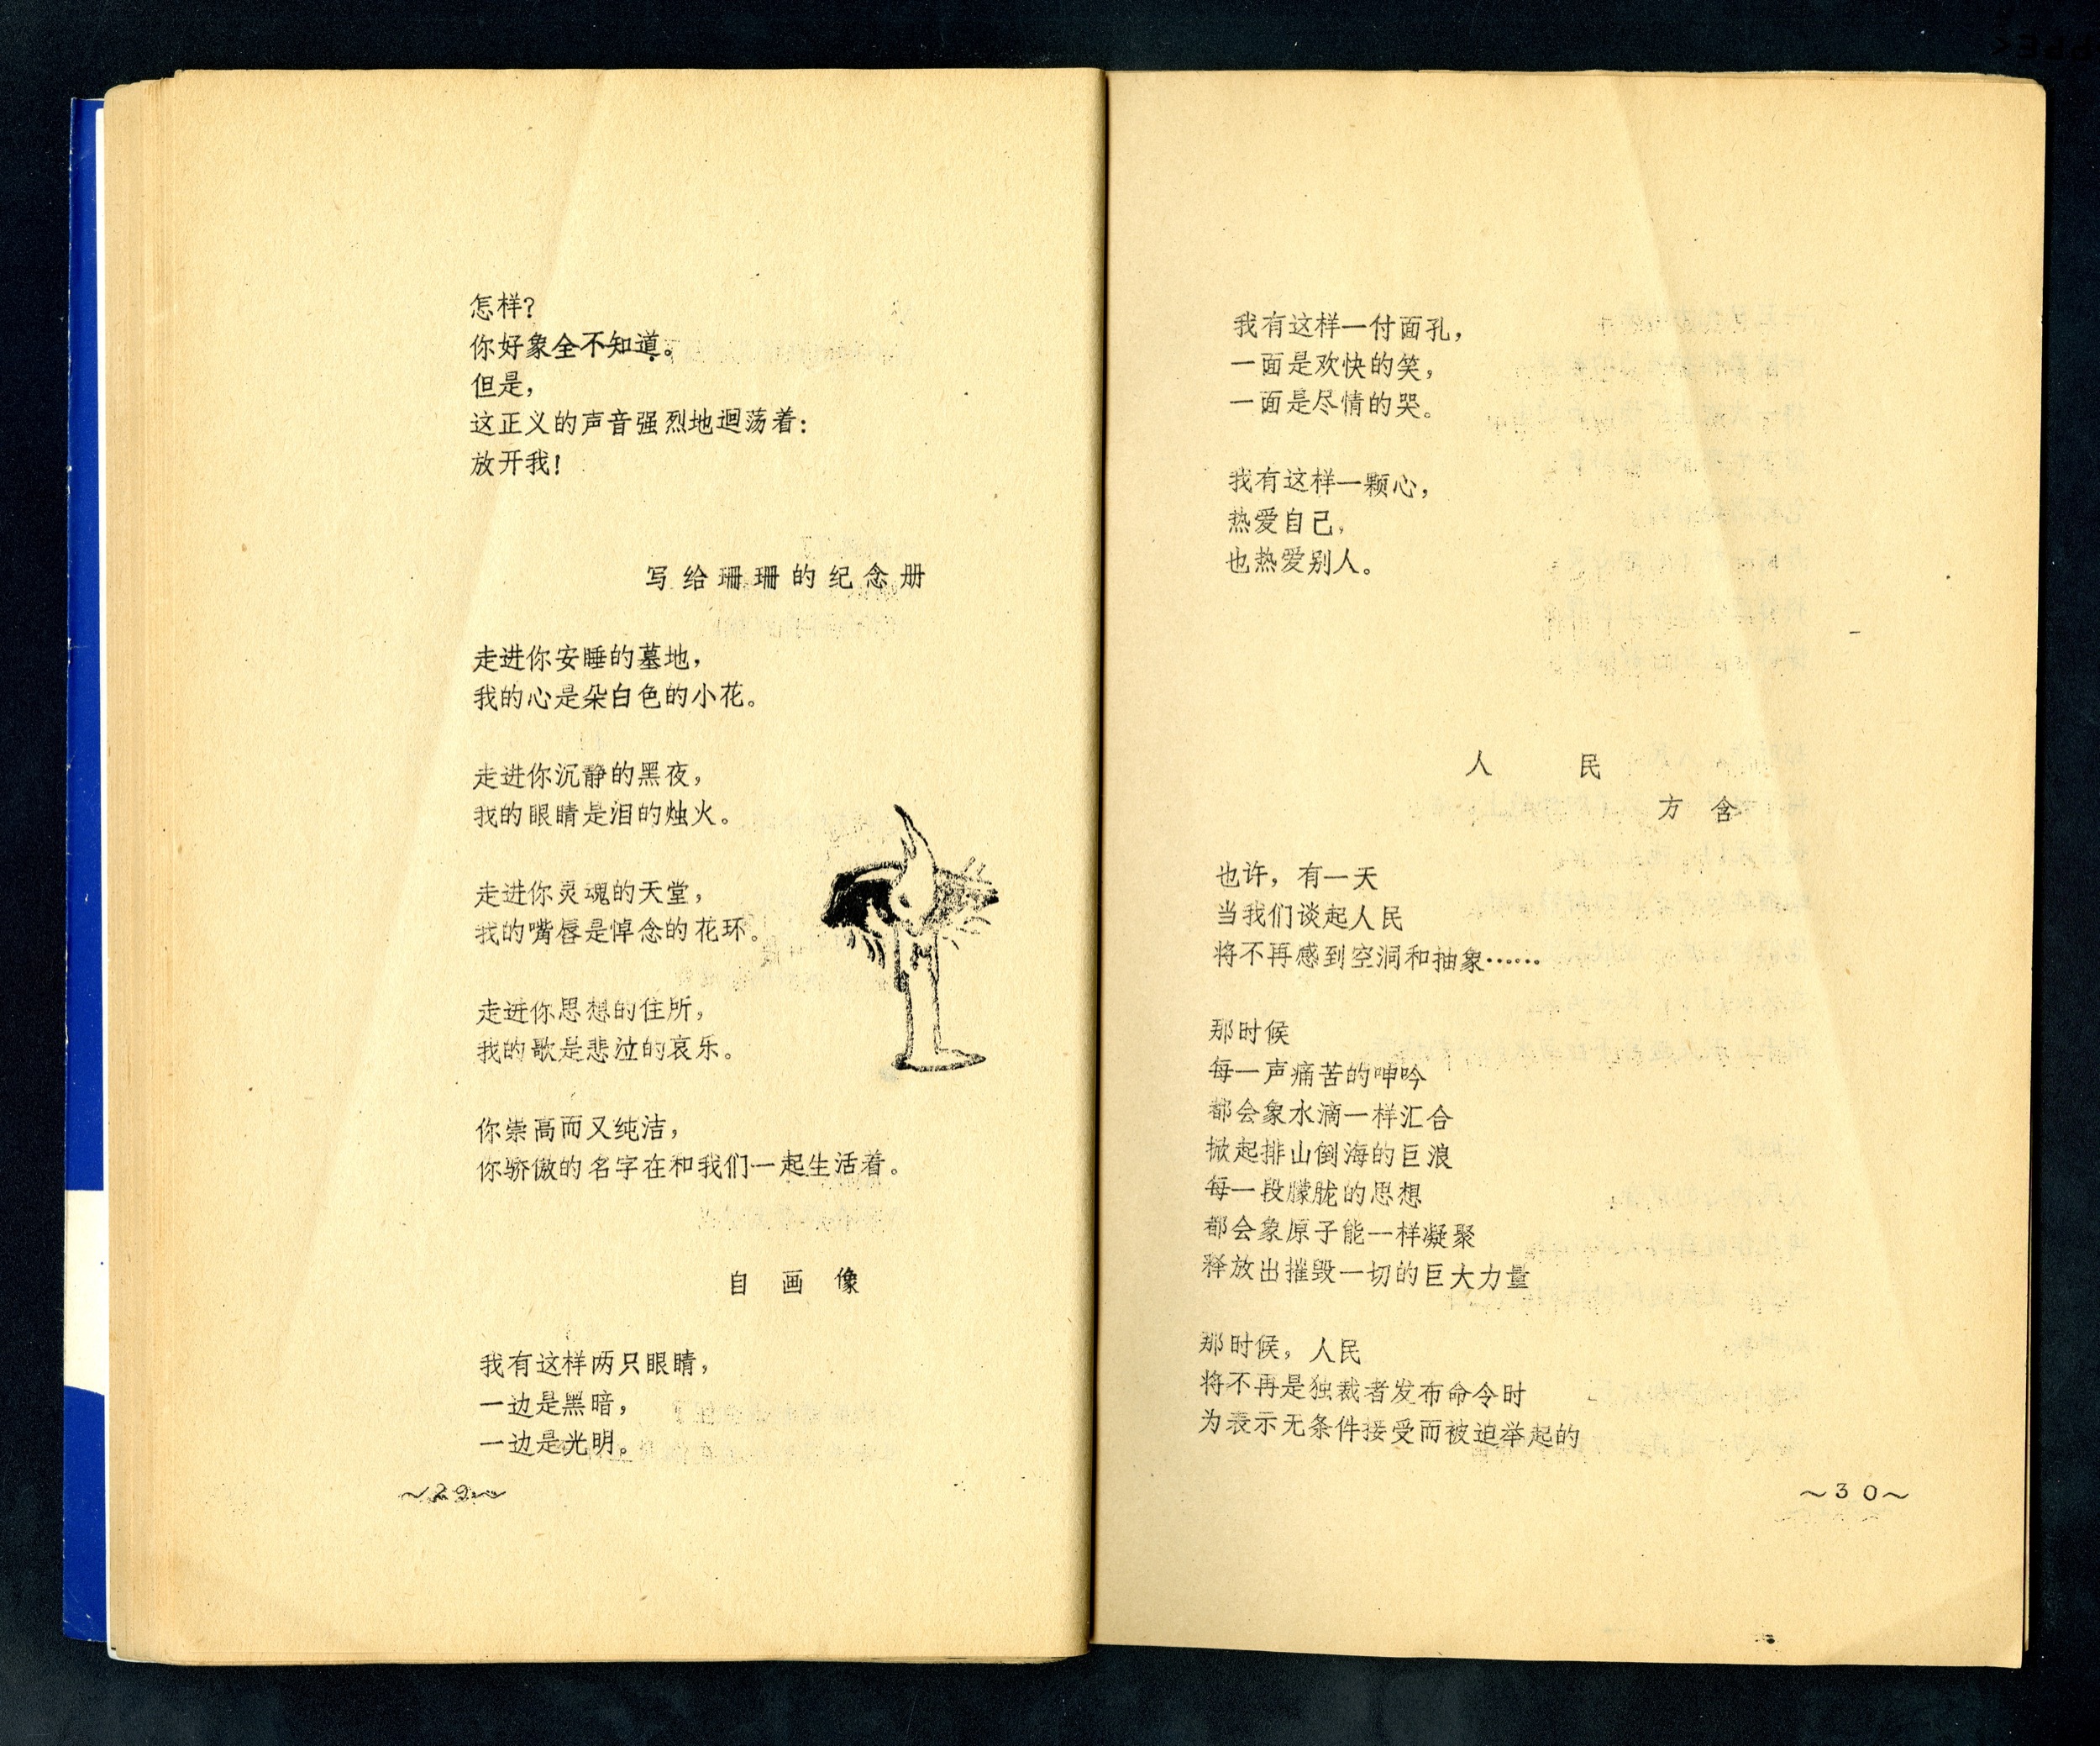 怎样？
你好象全不知道。
但是，
这正义的声音强烈地迴荡着：
放开我！
写给珊珊的纪念册
走进你安睡的墓地，
我的心是朵白色的小花。
走进你沉静的黑夜，
我的眼睛是泪的烛火。
走进你灵魂的天堂，
我的嘴唇是悼念的花环。
走进你思想的住所，
我的歌是悲泣的哀乐。
你崇高而又纯洁，
你骄傲的名字在和我们一起生活着。
自画像
我有这样两只眼睛，
一边是黑暗，
一边是光明。
～29～
我有这样一付面孔，
一面是欢快的笑，
一面是尽情的哭。
我有这样一颗心，
热爱自己，
也热爱别人。
人民
方含
也许，有一天
当我们谈起人民
将不再感到空洞和抽象……
那时候
每一声痛苦的呻吟
都会象水滴一样汇合
掀起排山倒海的巨浪
每一段朦胧的思想
都会象原子能一样凝聚
释放出摧毁一切的巨大力量
那时候，人民
将不再是独裁者发布命令时
为表示无条件接受而被迫举起的
～30～